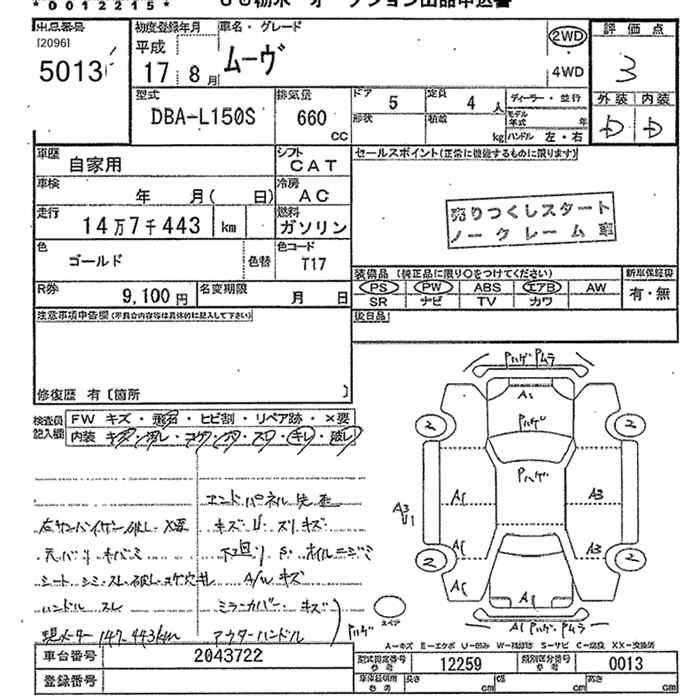 *0012215*
オークション出品申込書
出品番号
[2096]
5013
初度登録年月
平成
17 8月
車名・グレード
ムーヴ
2WD
4WD
評価点
3
外装 内装
D D
型式
DBA-L150S
排気量
660
cc
ドア 5
定員 4 人
形状
積載 kg
ディーラー・並行
モデル年式 年
ハンドル 左・右
車歴
自家用
シフト
CAT
セールスポイント(正常に機能するものに限ります)
車検
年 月( 日)
冷房
AC
走行
14万7千443 km
燃料
ガソリン
売りつくしスタート
ノークレーム車
色
ゴールド
色替
色コード
T17
R券
9,100円
名変期限
月 日
装備品 (純正品に限り○をつけてください)
PS PW ABS エアB AW
SR ナビ TV カワ
新車保証書
有・無
注意事項申告欄(不具合内容等は具体的に記入して下さい)
後日品
修復歴 有〔箇所 〕
検査員
記入欄
FW キズ・飛石・ヒビ割・リペア跡・×要
内装 キズ・汚レ・コゲ・穴・スレ・キレ・破レ
エンドパネル
左サンバイザー破レ X要
キズU スリキズ
下回りS ホイルニジミ
シート シミ スレ 破レ コゲ穴
A/Wキズ
ハンドル スレ
ミラーカバー キズ
現メーター 147,443km
アウターハンドル
Pハゲ
Pハゲ Pムラ
A1
Pハゲ
Pハゲ
2
2
A1
A3
A3
U1
A1
A3
2
2
A1
A1 Pハゲ Pムラ
スペア
A-キズ E-エクボ U-凹み W-補修跡 S-サビ C-腐食 XX-交換済
車台番号
2043722
登録番号
型式指定番号
参考
12259
類別区分番号
参考
0013
車庫証明用
参考
長さ cm
幅 cm
高さ cm